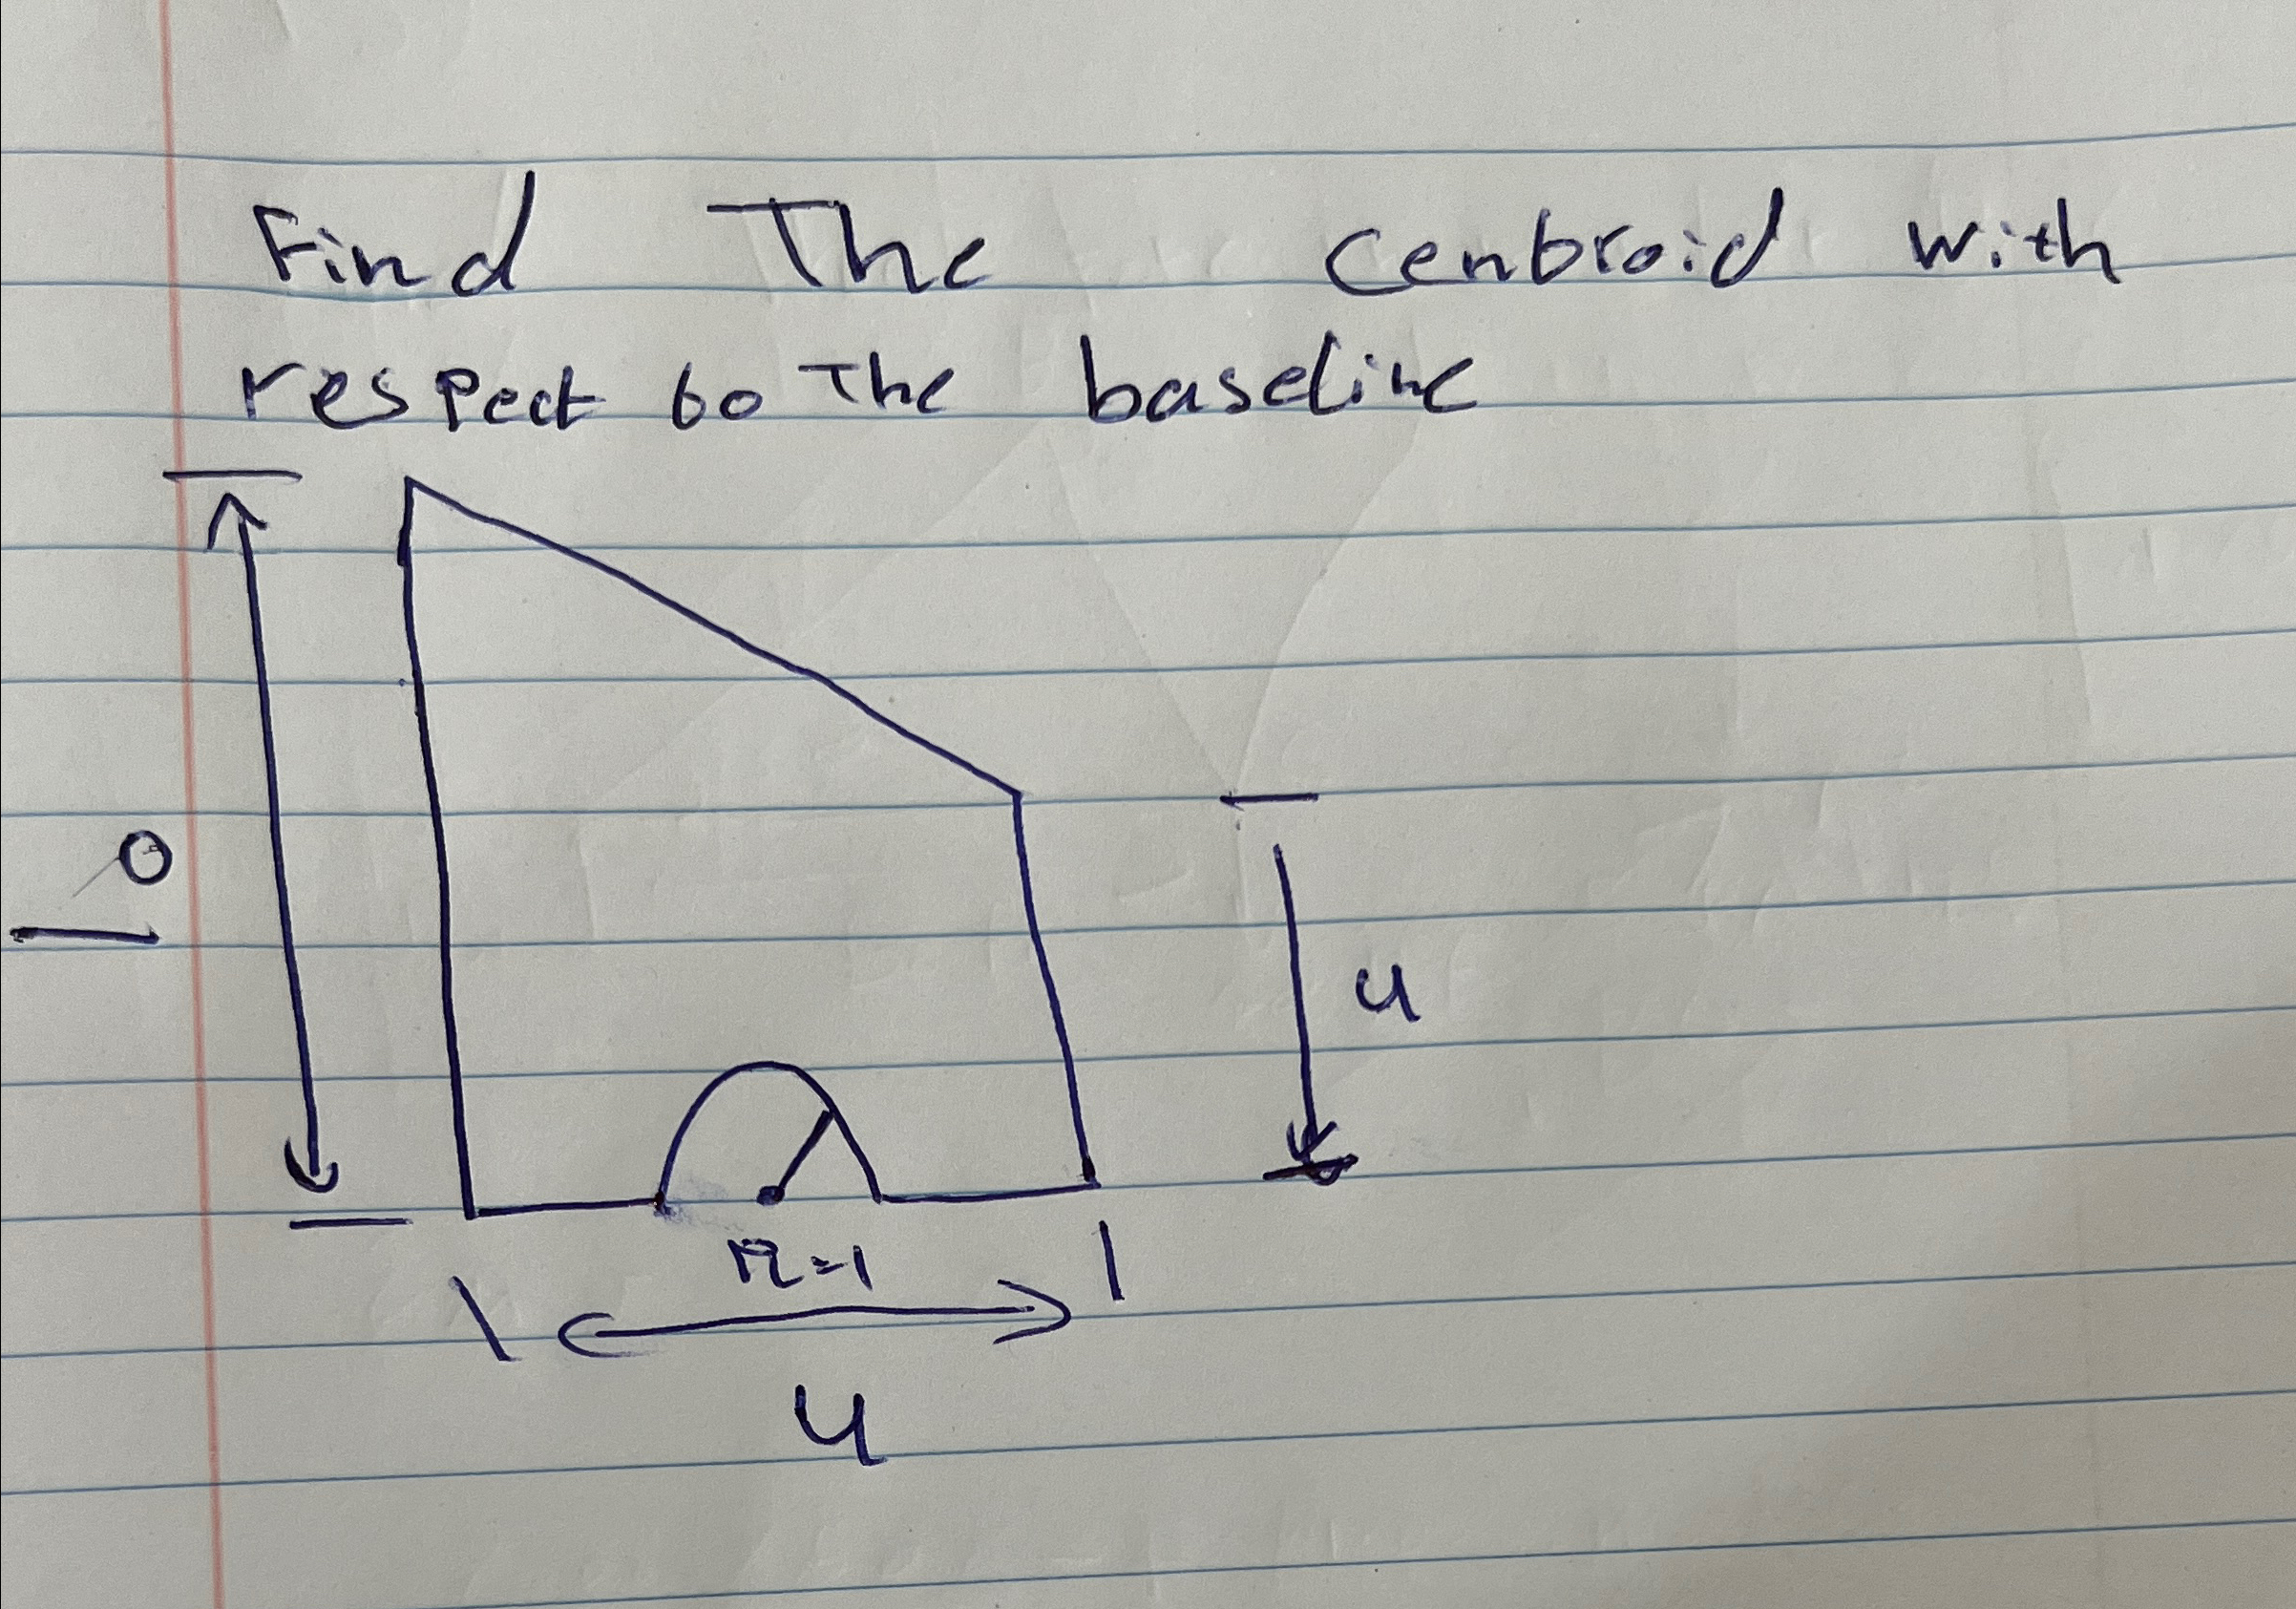 Find The centroid with
respect to The baseline
10
4
r=1
4